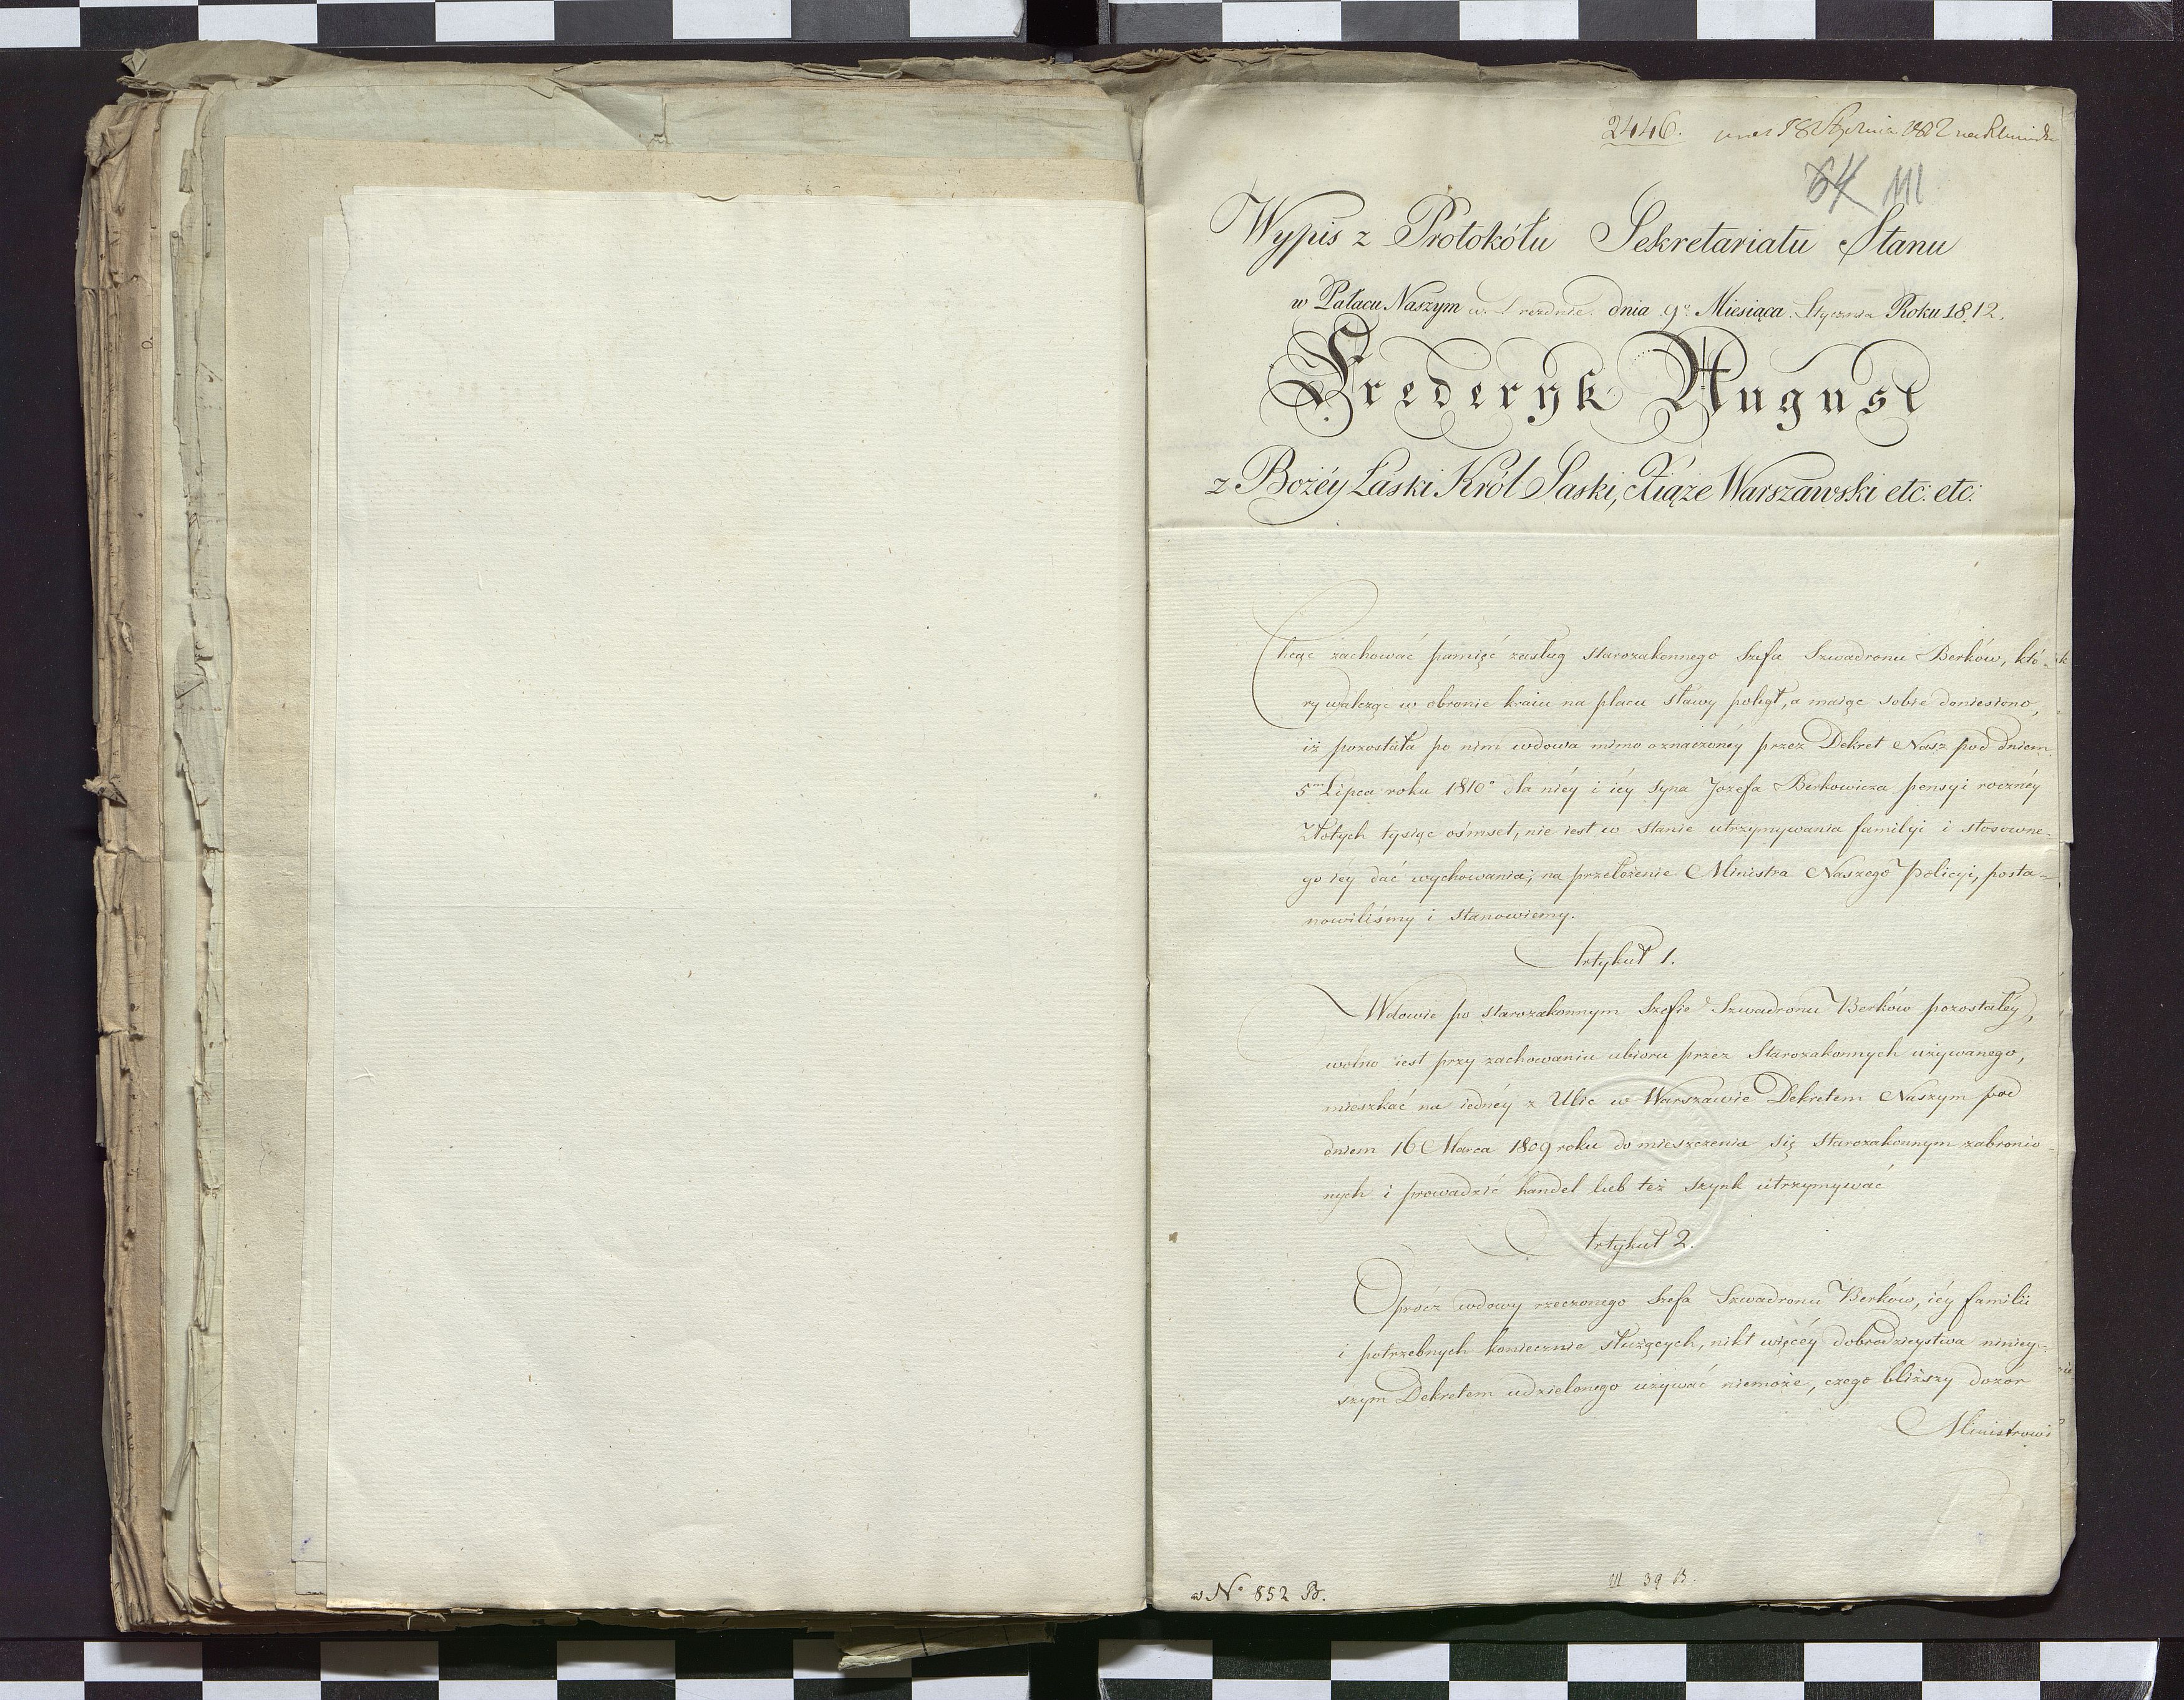 2446.
64 111
Wypis z Protokółu Sekretariatu Stanu
w Pałacu Naszym w Dreznie dnia 9º Miesiąca Stycznia Roku 1812.
Fryderyk August
z Bożéy Łaski Król Saski, Xiąże Warszawski etc: etc:
Chcąc zachować pamięć zasług starozakonnego Szefa Szwadronu Berków, któ-
ry walcząc w obronie kraiu na placu sławy poległ, a maiąc sobie doniesiono,
iż pozostała po nim wdowa mimo oznaczonéy przez Dekret Nasz pod dniem
5m Lipca roku 1810º dla niéy i iéy syna Jozefa Berkowicza pensyi rocznéy
Złotych tysiąc ośmset, nie iest w stanie utrzymywania familyi i stosowne-
go iéy dać wychowania; na przełożenie Ministra Naszego Policyi, posta-
nowiliśmy i stanowiemy.
Artykuł 1.
Wdowie po starozakonnym Szefie Szwadronu Berków pozostałéy,
wolno iest przy zachowaniu ubioru przez Starozakonnych używanego,
mieszkać na iednéy z Ulic w Warszawie Dekretem Naszym pod
dniem 16 Marca 1809 roku do mieszczenia się Starozakonnym zabronio-
nych i prowadzić handel lub też szynk utrzymywać
Artykuł 2.
Oprócz wdowy rzeczonego Szefa Szwadronu Berków, iéy familii
i potrzebnych koniecznie służących, nikt więcéy dobrodzieystwa niniey-
szym Dekretem udzielonego używać niemoże, czego bliższy dozor
Ministrowi
Nº 852 B.
III 39 B.